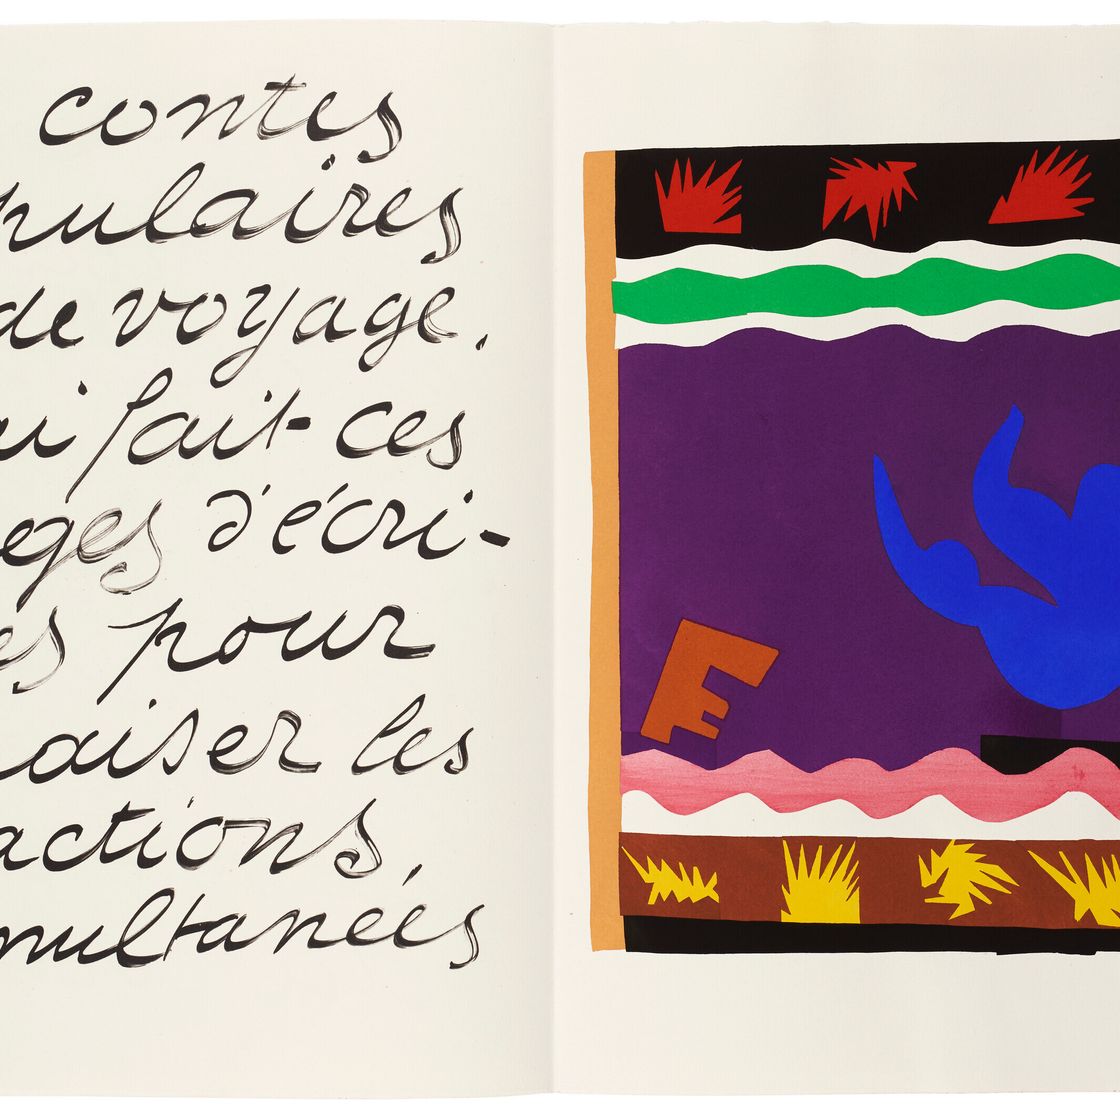 contes
pulaires
de voyage.
ai fait ces
ges d'écri-
es pour
aiser les
actions
multanées